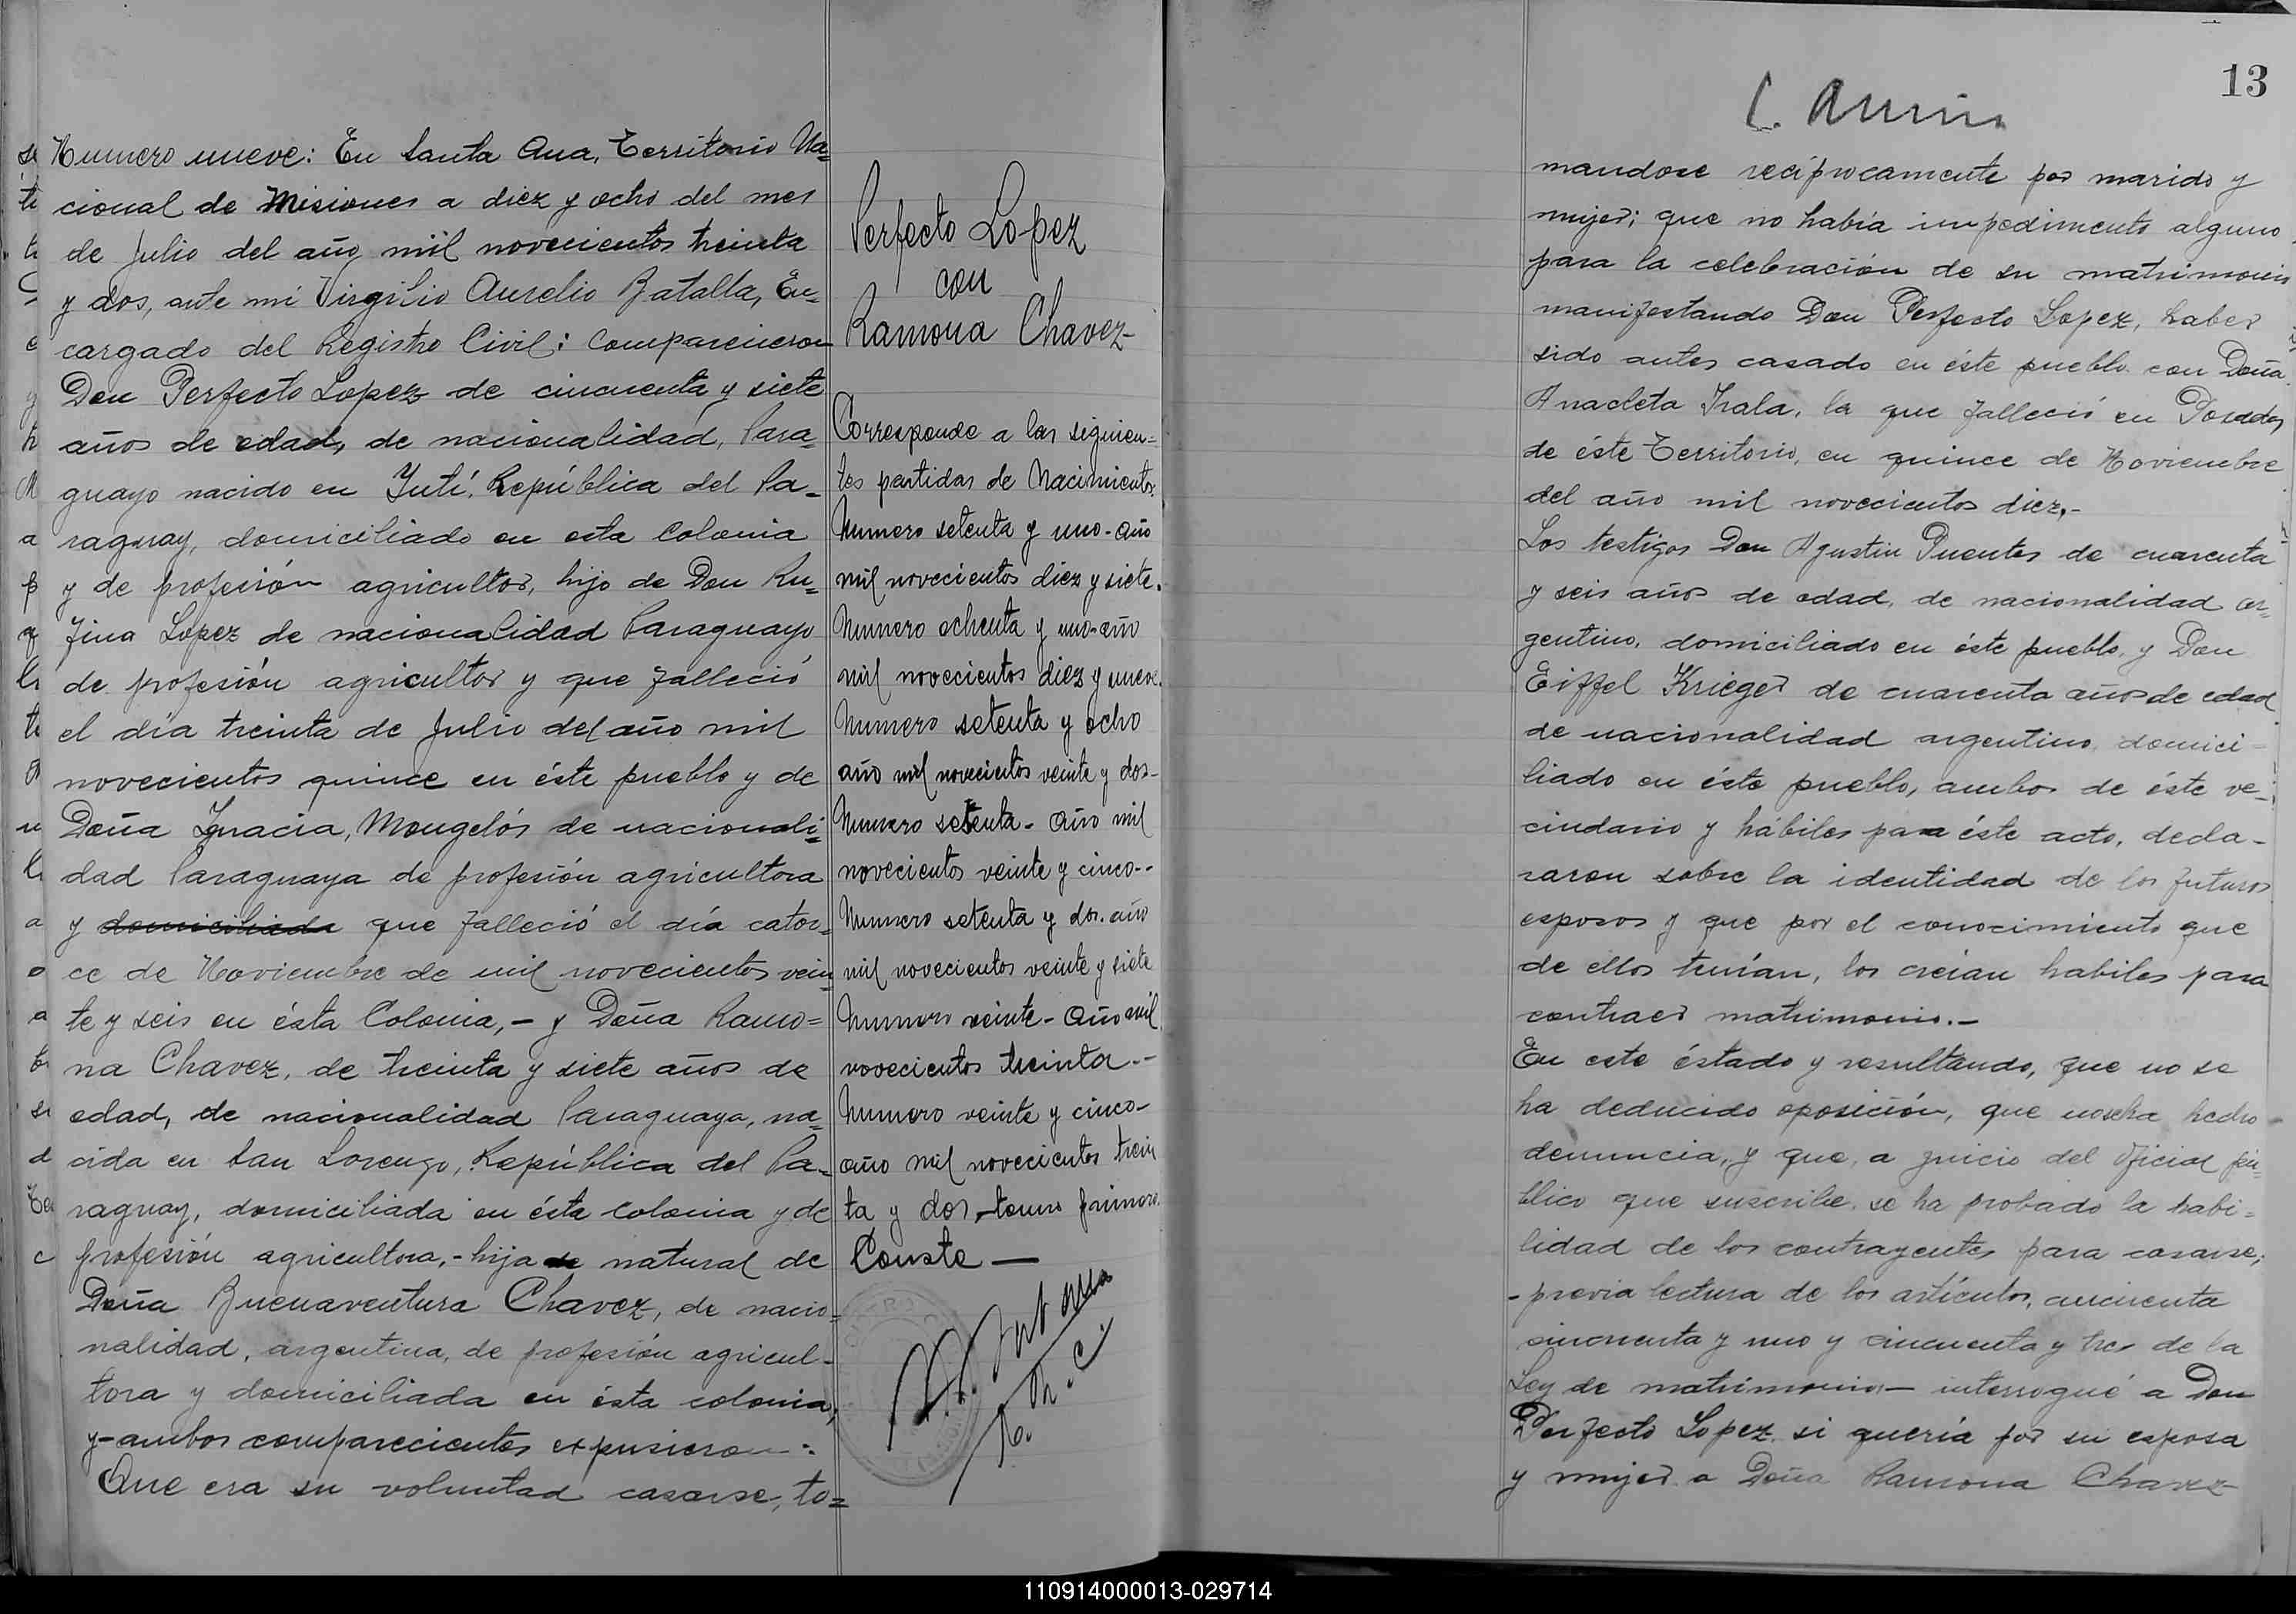 Numero nueve: En Santa Ana, Territorio Na=
cional de Misiones a diez y ocho del mes
de Julio del año mil novecientos treinta
y dos, ante mi Virgilio Aurelio Batalla, En=
cargado del Registro Civil: Comparecieron
Don Perfecto Lopez de cincuenta y siete
años de edad, de nacionalidad, Para=
guayo nacido en Yutí, República del Pa=
raguay, domiciliado en esta Colonia
y de profesión agricultor, hijo de Don Ru=
fino Lopez de nacionalidad Paraguayo
de profesión agricultor y que falleció
el día treinta de Julio del año mil
novecientos quince en éste pueblo y de
Doña Ignacia, Mongelós de nacionali=
dad Paraguaya de profesión agricultora
y domiciliada que falleció el día cator=
ce de Noviembre de mil novecientos vein=
te y seis en ésta Colonia,- y Doña Ramo=
na Chavez, de treinta y siete años de
edad, de nacionalidad Paraguaya, na=
cida en San Lorenzo, República del Pa=
raguay, domiciliada en ésta colonia y de
profesión agricultora,- hija de natural de
Doña Buenaventura Chavez, de nacio=
nalidad, argentina, de profesión agricul-
tora y domiciliada en ésta colonia,
y-ambos comparecientes expusieron:
Que era su voluntad casarse, to=
Perfecto Lopez
con
Ramona Chavez-
Corresponde a las siguien=
tes partidas de Nacimientos.
Numero setenta y uno-año
mil novecientos diez y siete.
Numero ochenta y uno-año
mil novecientos diez y nueve.
Numero setenta y ocho
año mil novecientos veinte y dos-
Numero setenta- Año mil
novecientos veinte y cinco--
Numero setenta y dos. año
mil novecientos veinte y siete
Numero veinte- Año mil
novecientos treinta.-
Numero veinte y cinco-
año mil novecientos trein
ta y dos,-tomo primero.
Conste —
13
mandose recíprocamente por marido y
mujer; que no había impedimento alguno
para la celebración de su matrimonio
manifestando Don Perfecto Lopez, haber
sido antes casado en éste pueblo con Doña
Anacleta Irala, la que falleció en Posadas
de éste Territorio, en quince de Noviembre
del año mil novecientos diez.-
Los testigos Don Agustin Puentes de cuarenta
y seis años de edad, de nacionalidad ar=
gentino, domiciliado en éste pueblo, y Don
Eiffel Krieger de cuarenta años de edad
de nacionalidad argentino, domici=
liado en éste pueblo, ambos de éste ve-
cindario y hábiles para éste acto, decla-
raron sobre la identidad de los futuros
esposos y que por el conocimiento que
de ellos tenían, los creían habiles para
contraer matrimonio.-
En este éstado y resultando, que no se
ha deducido oposición, que no se ha hecho
denuncia, y que, a juicio del Oficial pú=
blico que suscribe, se ha probado la habi=
lidad de los contrayentes para casarse,
-previa lectura de los artículos, cincuenta
cincuenta y uno y cincuenta y tres de la
Ley de matrimonio- interrogué a Don
Perfecto Lopez si quería por su esposa
y mujer a Doña Ramona Chavez-
110914000013-029714